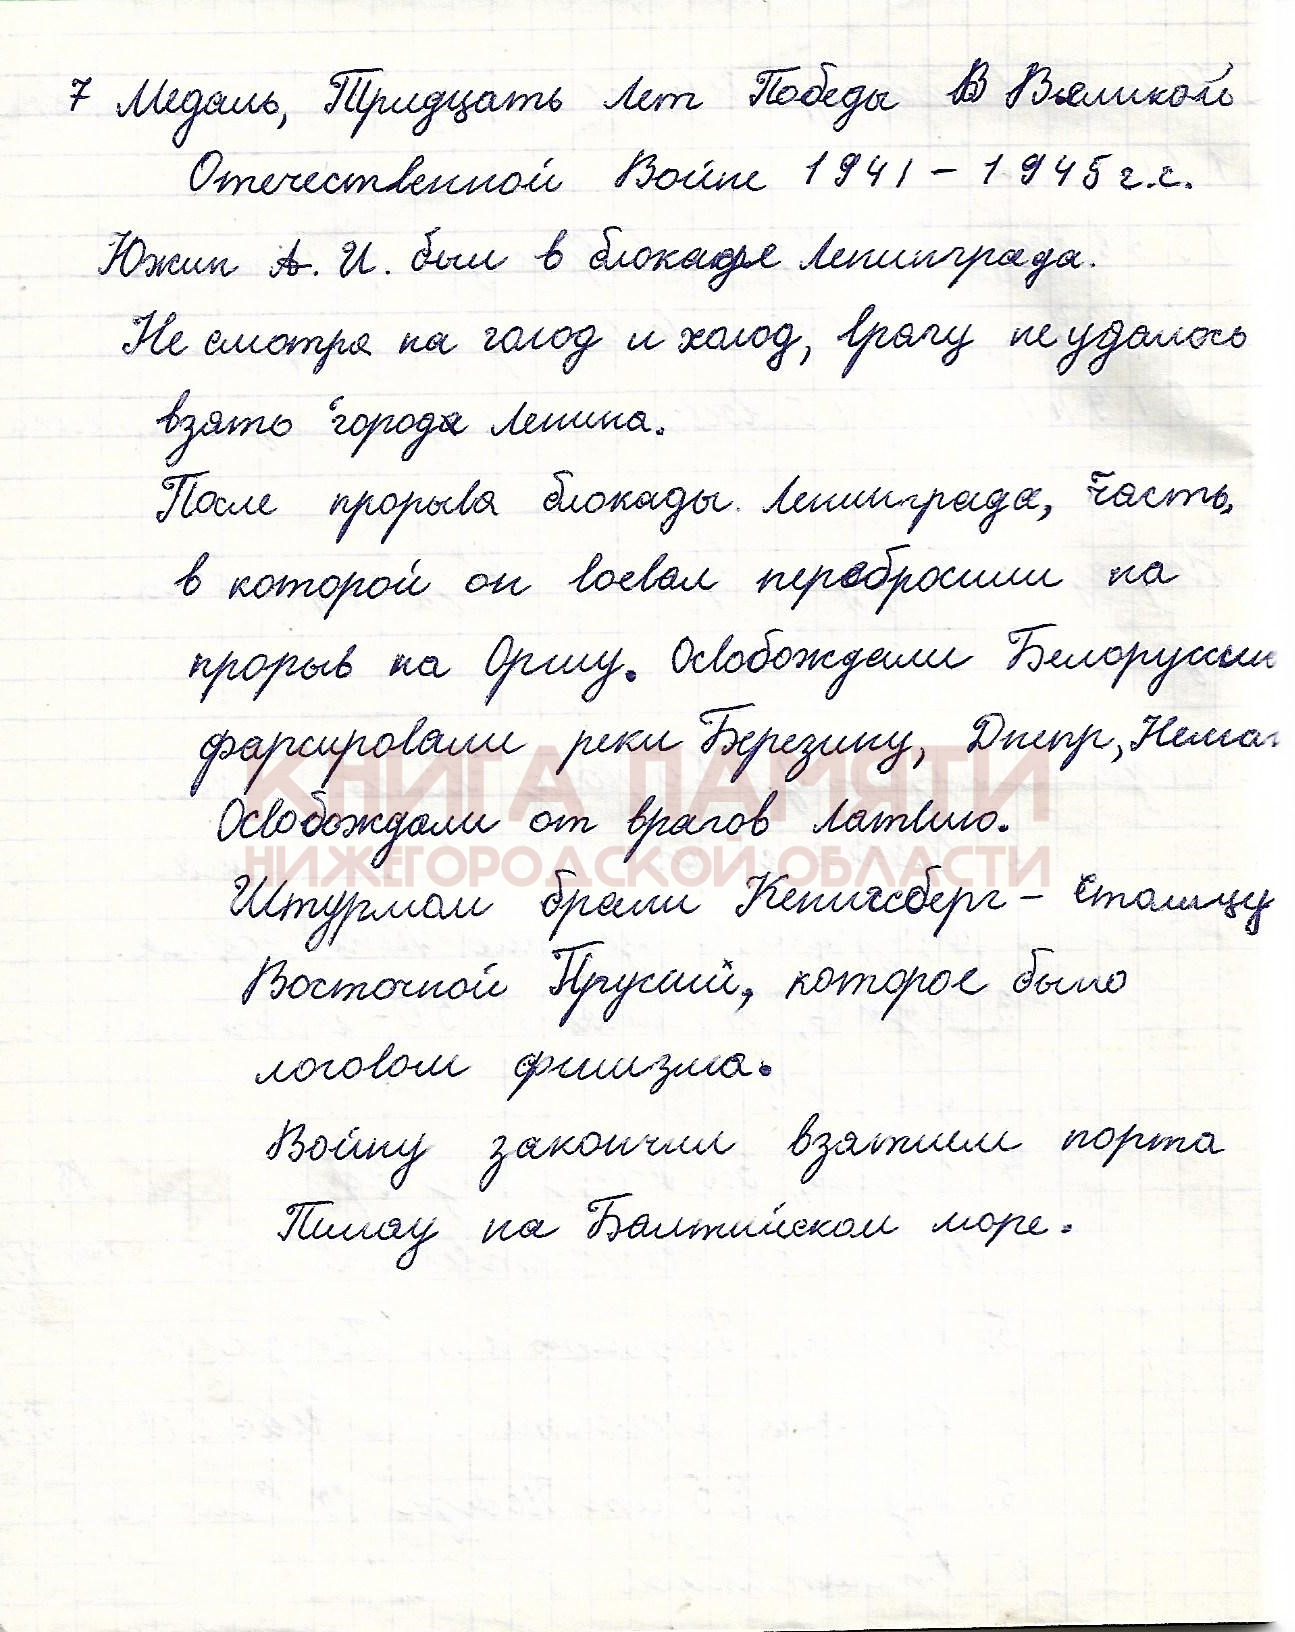 7 Медаль, Тридцать Лет Победы В Великой
Отечественной Войне 1941-1945 г.г.
Южин А. И. был в блокаде Ленинграда.
Не смотря на голод и холод, врагу не удалось
взять города Ленина.
После прорыва блокады Ленинграда, часть,
в которой он воевал перебросили на
прорыв на Оршу. Освобождали Белоруссию
фарсировали реки Березину, Днепр, Неман
КНИГА ПАМЯТИ
Освобождали от врагов Латвию.
НИЖЕГОРОДСКОЙ ОБЛАСТИ
Штурмом брали Кенигсберг – столицу
Восточной Прусий, которое было
логовом фшизма.
Войну закончил взятием порта
Пилау на Балтийском море.